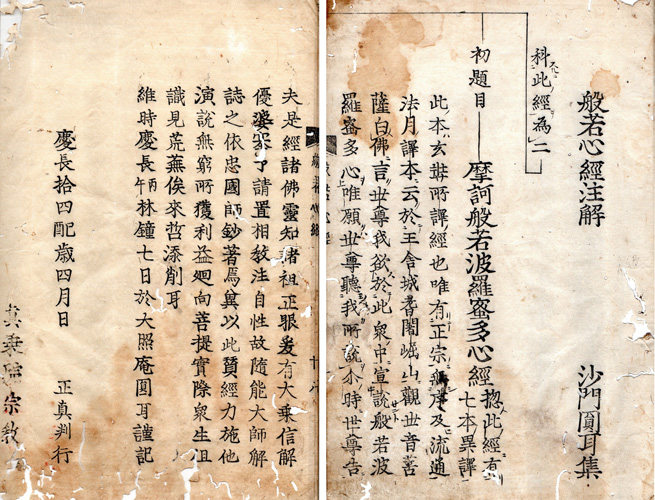 般若心經注解 沙門圓耳集
科此經為二
初題目 摩訶般若波羅蜜多心經 惣此經有
七本異譯
此本玄奘所譯經也唯有正宗無序及流通
法月譯本云於王舍城耆闍崛山觀世音菩
薩白佛言世尊我欲於此衆中宣說般若波
羅蜜多心唯願世尊聽我所說尒時世尊告
夫是經諸佛靈知諸祖正眼爰有大乗信解
優婆了請置相教注自性故随能大師解
誌之依忠國師鈔著焉冀以此賛經力施他
演說無窮所獲利益廻向菩提實際衆生俎
識見荒蕪俟來哲添削耳
維時慶長丙午林鐘七日於大照庵圓耳謹記
慶長拾四酉歳四月日 正真判行